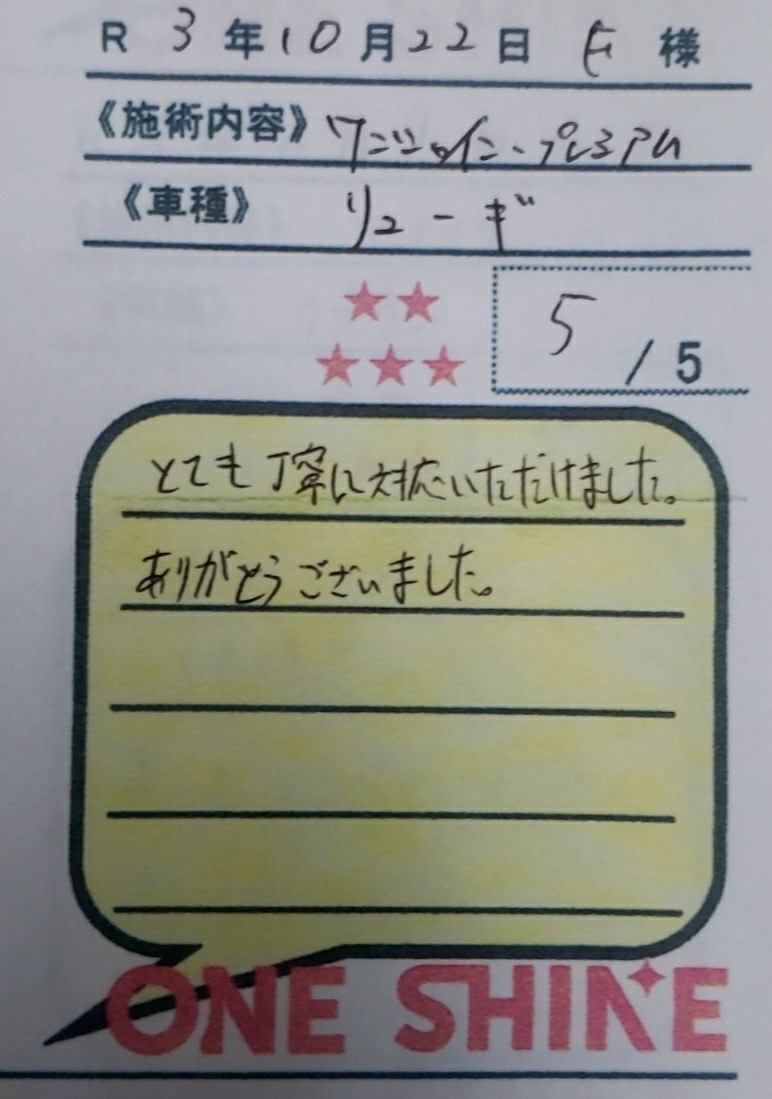 R 3年10月22日 E 様
《施術内容》ワンシャイン・プレミアム
《車種》リューギ
5 / 5
とても丁寧に対応いただけました。
ありがとうございました。
ONE SHINE